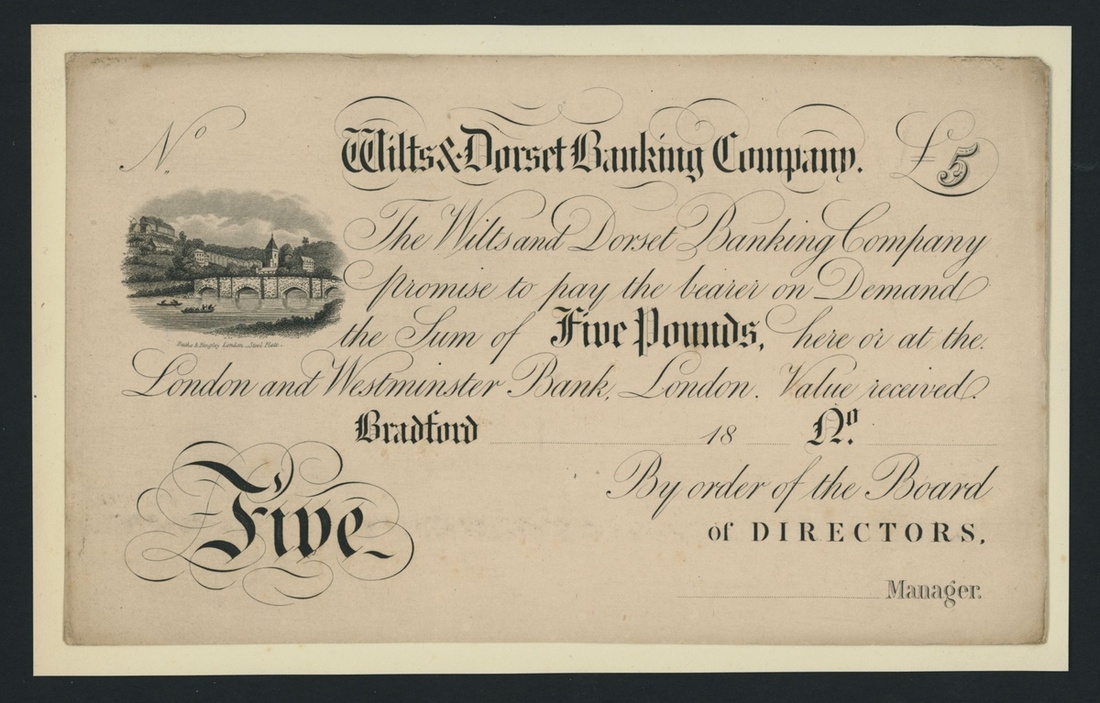 No Wilts & Dorset Banking Company. £5
The Wilts and Dorset Banking Company
promise to pay the bearer on Demand
the Sum of Five Pounds, here or at the
London and Westminster Bank, London. Value received.
Bradford 18 No.
Five
By order of the Board
of DIRECTORS.
Manager.
London Steel Plate.